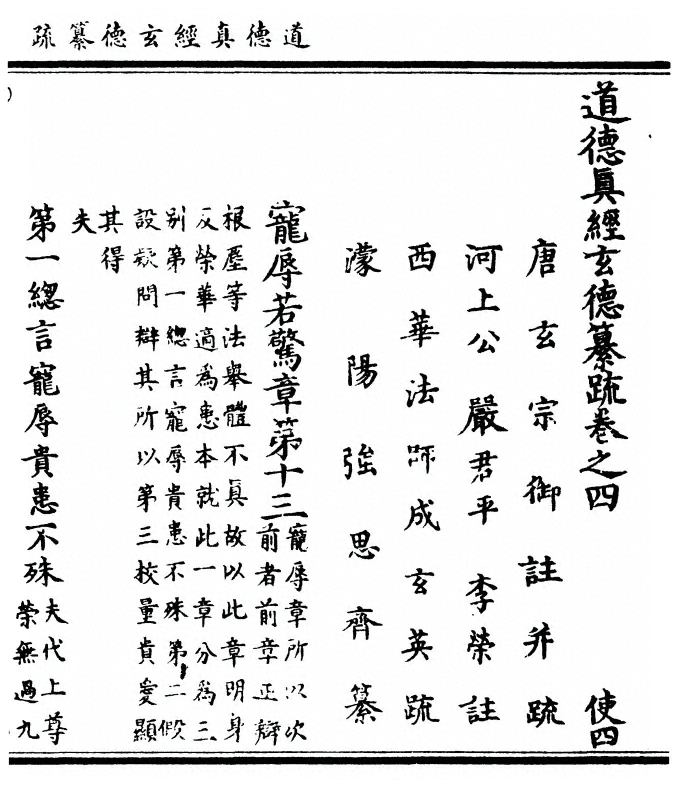 道德真經玄德纂疏
道德真經玄德纂疏卷之四 使四
唐玄宗御註并疏
河上公 嚴君平 李榮註
西華法師成玄英疏
濛陽強思齊纂
寵辱若驚章第十三
寵辱章所以次
前者前章正辯
根塵等法舉體不真故以此章明身
及榮華適為患本就此一章分為三
別第一總言寵辱貴患不殊第二假
設疑問辯其所以第三校量貴愛顯
其得
失
第一總言寵辱貴患不殊
夫代上尊
榮無過九